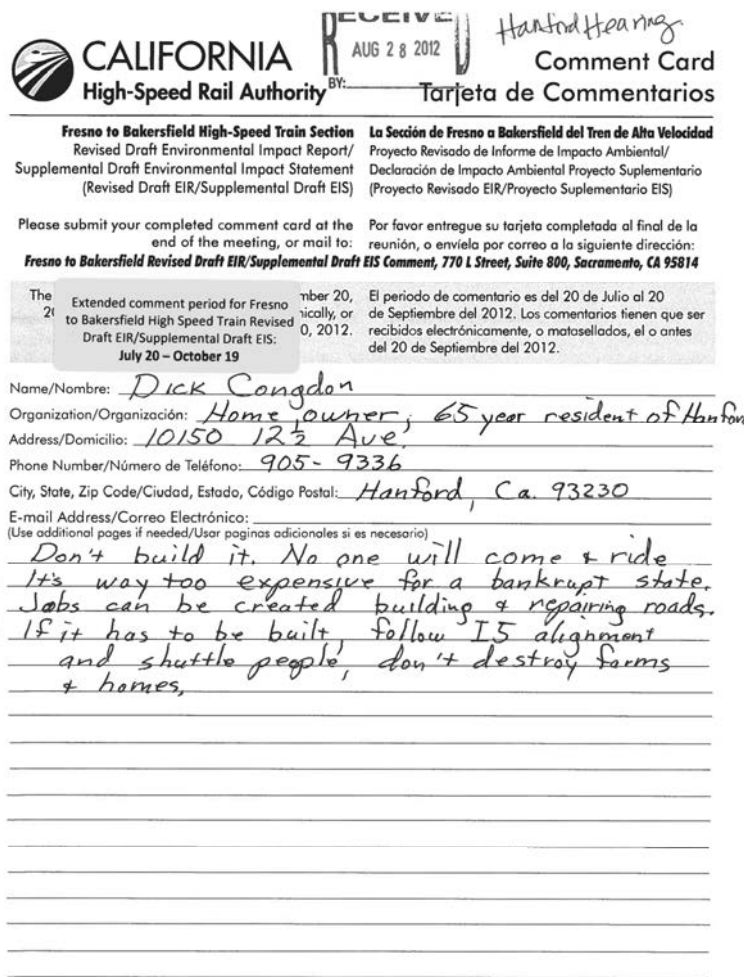 RECEIVE
AUG 28 2012
BY:
Hanford Hearing
CALIFORNIA
High-Speed Rail Authority
Comment Card
Tarjeta de Comentarios
Fresno to Bakersfield High-Speed Train Section
Revised Draft Environmental Impact Report/
Supplemental Draft Environmental Impact Statement
(Revised Draft EIR/Supplemental Draft EIS)
La Sección de Fresno a Bakersfield del Tren de Alta Velocidad
Proyecto Revisado de Informe de Impacto Ambiental/
Declaración de Impacto Ambiental Proyecto Suplementario
(Proyecto Revisado EIR/Proyecto Suplementario EIS)
Please submit your completed comment card at the
end of the meeting, or mail to:
Por favor entregue su tarjeta completada al final de la
reunión, o envíela por correo a la siguiente dirección:
Fresno to Bakersfield Revised Draft EIR/Supplemental Draft EIS Comment, 770 L Street, Suite 800, Sacramento, CA 95814
The
Extended comment period for Fresno
to Bakersfield High Speed Train Revised
Draft EIR/Supplemental Draft EIS:
July 20 – October 19
mber 20,
ically, or
0, 2012.
El periodo de comentario es del 20 de Julio al 20
de Septiembre del 2012. Los comentarios tienen que ser
recibidos electrónicamente, o matasellados, el o antes
del 20 de Septiembre del 2012.
Name/Nombre: Dick Congdon
Organization/Organización: Home owner, 65 year resident of Hanford
Address/Domicilio: 10150 12½ Ave.
Phone Number/Número de Teléfono: 905-9336
City, State, Zip Code/Ciudad, Estado, Código Postal: Hanford, Ca. 93230
E-mail Address/Correo Electrónico:
(Use additional pages if needed/Usar paginas adicionales si es necesario)
Don't build it. No one will come & ride
It's way too expensive for a bankrupt state.
Jobs can be created building & repairing roads.
If it has to be built, follow I5 alignment
and shuttle people, don't destroy farms
& homes.